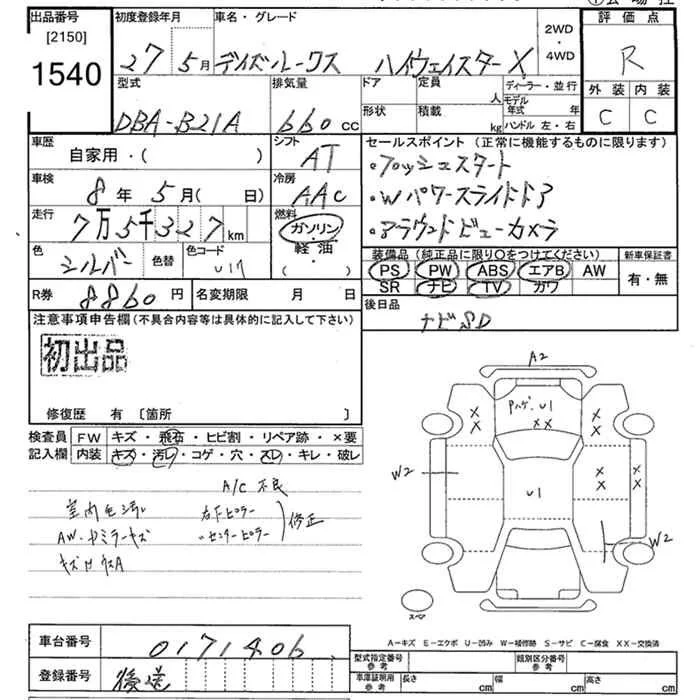 出品番号
[2150]
1540
初度登録年月
27 5月
車名・グレード
デイズルークス ハイウェイスターX
2WD
・
4WD
評価点
R
外装 内装
C C
型式
DBA-B21A
排気量
660cc
ドア
定員
人
形状
積載
kg
ディーラー・並行
モデル年式 年
ハンドル 左・右
車歴
自家用・( )
シフト
AT
車検
8年5月( 日)
冷房
AAC
走行
7万5千327km
燃料
ガソリン・軽油
( )
色
シルバー
色替
色コード
R券
8860円
名変期限 月 日
セールスポイント(正常に機能するものに限ります)
・プッシュスタート
・Wパワースライドドア
・アラウンドビューカメラ
装備品(純正品に限り○をつけてください)
PS PW ABS エアB AW
SR ナビ TV カワ
新車保証書
有・無
後日品
ナビSD
注意事項申告欄(不具合内容等は具体的に記入して下さい)
初出品
修復歴 有[箇所 ]
検査員記入欄
FW キズ・飛石・ヒビ割・リペア跡・×要
内装 キズ・汚レ・コゲ・穴・スレ・キレ・破レ
A/C 不良
室内 汚レ
右F ピラー
〃センターピラー
修正
AW・ドアミラーキズ
A2
Pハゲ・U1
XX
X
X
X
X
W2
U1
XX
XX
W2
スペア
A-キズ E-エクボ U-凹み W-補修跡 S-サビ C-腐食 XX-交換済
車台番号
0171406
登録番号
後送
型式指定番号
参考
類別区分番号
参考
車庫証明用
参考
長さ cm
幅 cm
高さ cm